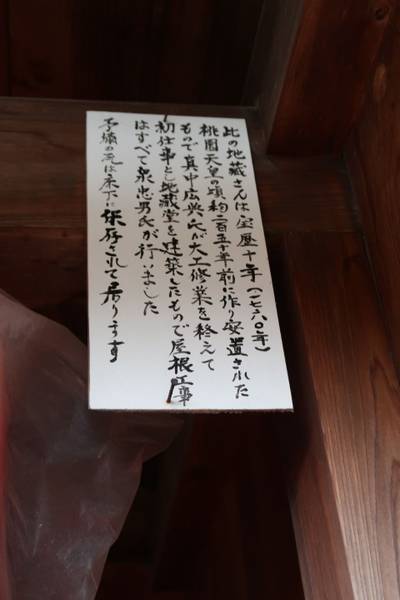 此の地蔵さんは宝暦十年(一七六〇年)
桃園天皇の頃約二百五十年前に作り安置された
もので真中広典氏が大工修業を終えて
初仕事とし地蔵堂を建築したもので屋根工事
はすべて泉忠男氏が行いました
予備の瓦は床下に保存されて居ります